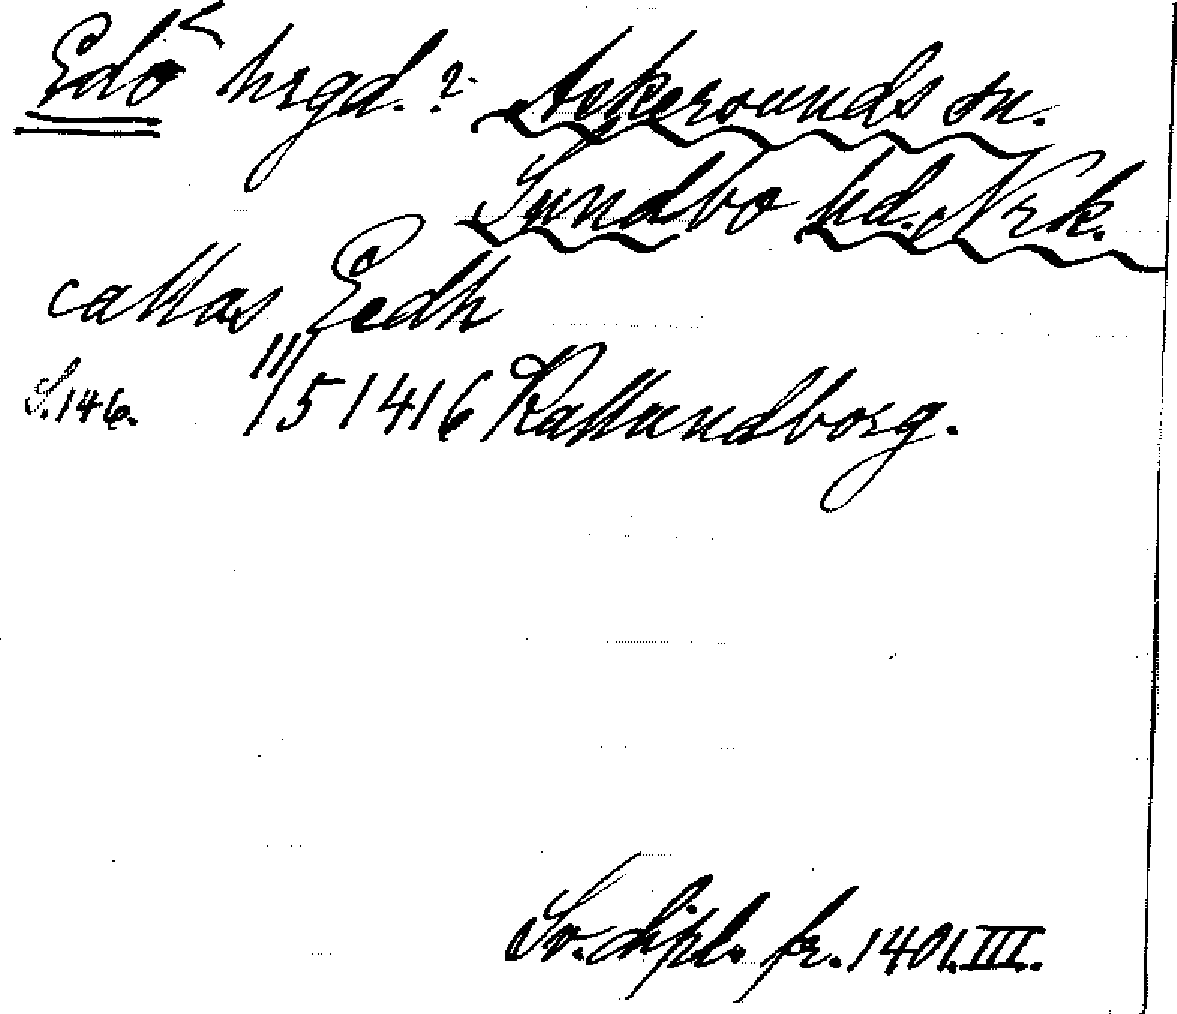 Edö hrgd.? Askersunds sn.
Sundbo hd. Nrk.
callas Eedh
S. 146. 15/III 1416 Kallundborg.
Sv. dipl. fr. 1401. III.